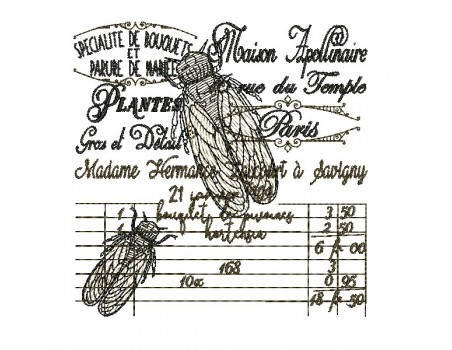 SPECIALITE DE BOUQUETS
ET
PARURE DE MARIÉE
Maison Apollinaire
rue du Temple
PLANTES
Gros et Détail
Paris
Madame Hermance à Savigny
21
1 bouquet 3 50
1 hortensia 2 50
6 fr 00
168 3
10x 0 95
18 fr 50